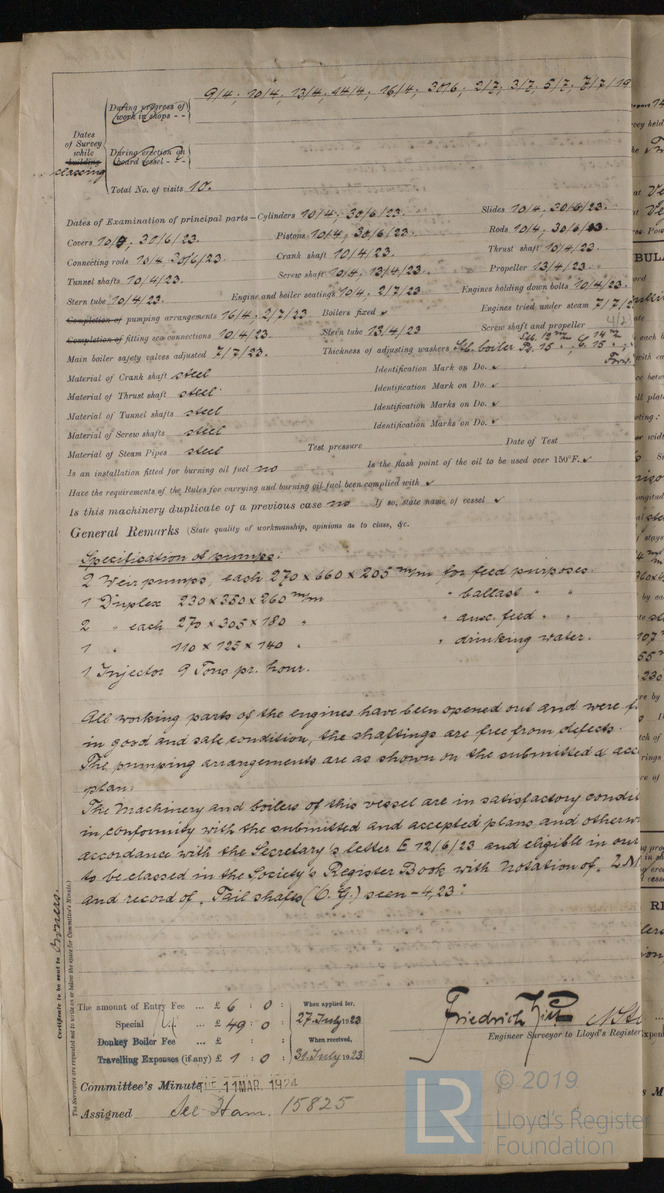 9/4; 10/4, 13/4, 14/4, 16/4; 30/6; 2/7, 3/7, 5/7, 7/7/19
During progress of work in shops - -
Dates of Survey while building classing
During erection on board vessel - - -
Total No. of visits 10.
Dates of Examination of principal parts—Cylinders 10/4, 30/6/23. Slides 10/4, 30/6/23.
Covers 10/4, 30/6/23. Pistons 10/4, 30/6/23. Rods 10/4, 30/6/23.
Connecting rods 10/4 30/6/23. Crank shaft 10/4/23. Thrust shaft 10/4/23.
Tunnel shafts 10/4/23. Screw shaft 10/4, 13/4/23. Propeller 13/4/23.
Stern tube 10/4/23. Engine and boiler seatings 10/4, 2/7/23. Engines holding down bolts 10/4/23.
Completion of pumping arrangements 16/4, 2/7/23 Boilers fixed ✓ Engines tried under steam 7/7/2
Completion of fitting sea connections 10/4/23. Stern tube 13/4/23 Screw shaft and propeller
Main boiler safety valves adjusted 7/7/23. Thickness of adjusting washers Stb. boiler
Material of Crank shaft steel Identification Mark on Do. ✓
Material of Thrust shaft steel Identification Mark on Do. ✓
Material of Tunnel shafts steel Identification Marks on Do. ✓
Material of Screw shafts steel Identification Marks on Do. ✓
Material of Steam Pipes steel Test pressure Date of Test
Is an installation fitted for burning oil fuel no Is the flash point of the oil to be used over 150°F. ✓
Have the requirements of the Rules for carrying and burning oil fuel been complied with ✓
Is this machinery duplicate of a previous case no If so, state name of vessel ✓
General Remarks (State quality of workmanship, opinions as to class, &c.
Specification of pumps:
2 Weir pumps, each 270 x 660 x 205 m/m for feed purposes.
1 Duplex 230 x 350 x 260 m/m " ballast "
2 " each 270 x 305 x 180 " " aux. feed " "
1 " 110 x 125 x 140 " " drinking water.
1 Injector 9 Tons pr. hour.
All working parts of the engines have been opened out and were f
in good and safe condition, the shaftings are free from defects.
The pumping arrangements are as shown on the submitted & acc
plan.
The Machinery and boilers of this vessel are in satisfactory condit
in conformity with the submitted and accepted plans and otherw
accordance with the Secretary's letter E 12/6/23 and eligible in our
to be classed in the Society's Register Book with Notation of
and record of "Tail shafts (O.G.) seen - 4,23."
Certificate to be sent to Owners.
The Surveyors are requested not to write on or below the space for Committee's Minute.
The amount of Entry Fee ... £ 6 : 0 : When applied for,
Special ... £ 49 : 0 : 27. July 1923
Donkey Boiler Fee ... £ : : When received,
Travelling Expenses (if any) £ 1 : 0 : 31. July 1923
Friedrich
Engineer Surveyor to Lloyd's Register
Committee's Minute TUE. 11 MAR. 1924
Assigned See Ham. 15825
LR
© 2019
Lloyd's Register
Foundation